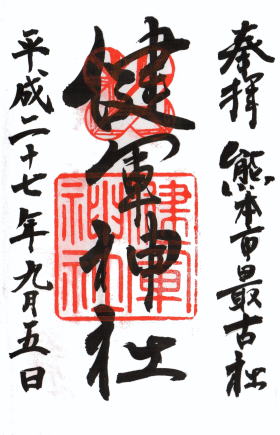 奉拝 熊本市最古社
健軍神社
平成二十七年九月五日
健軍神社